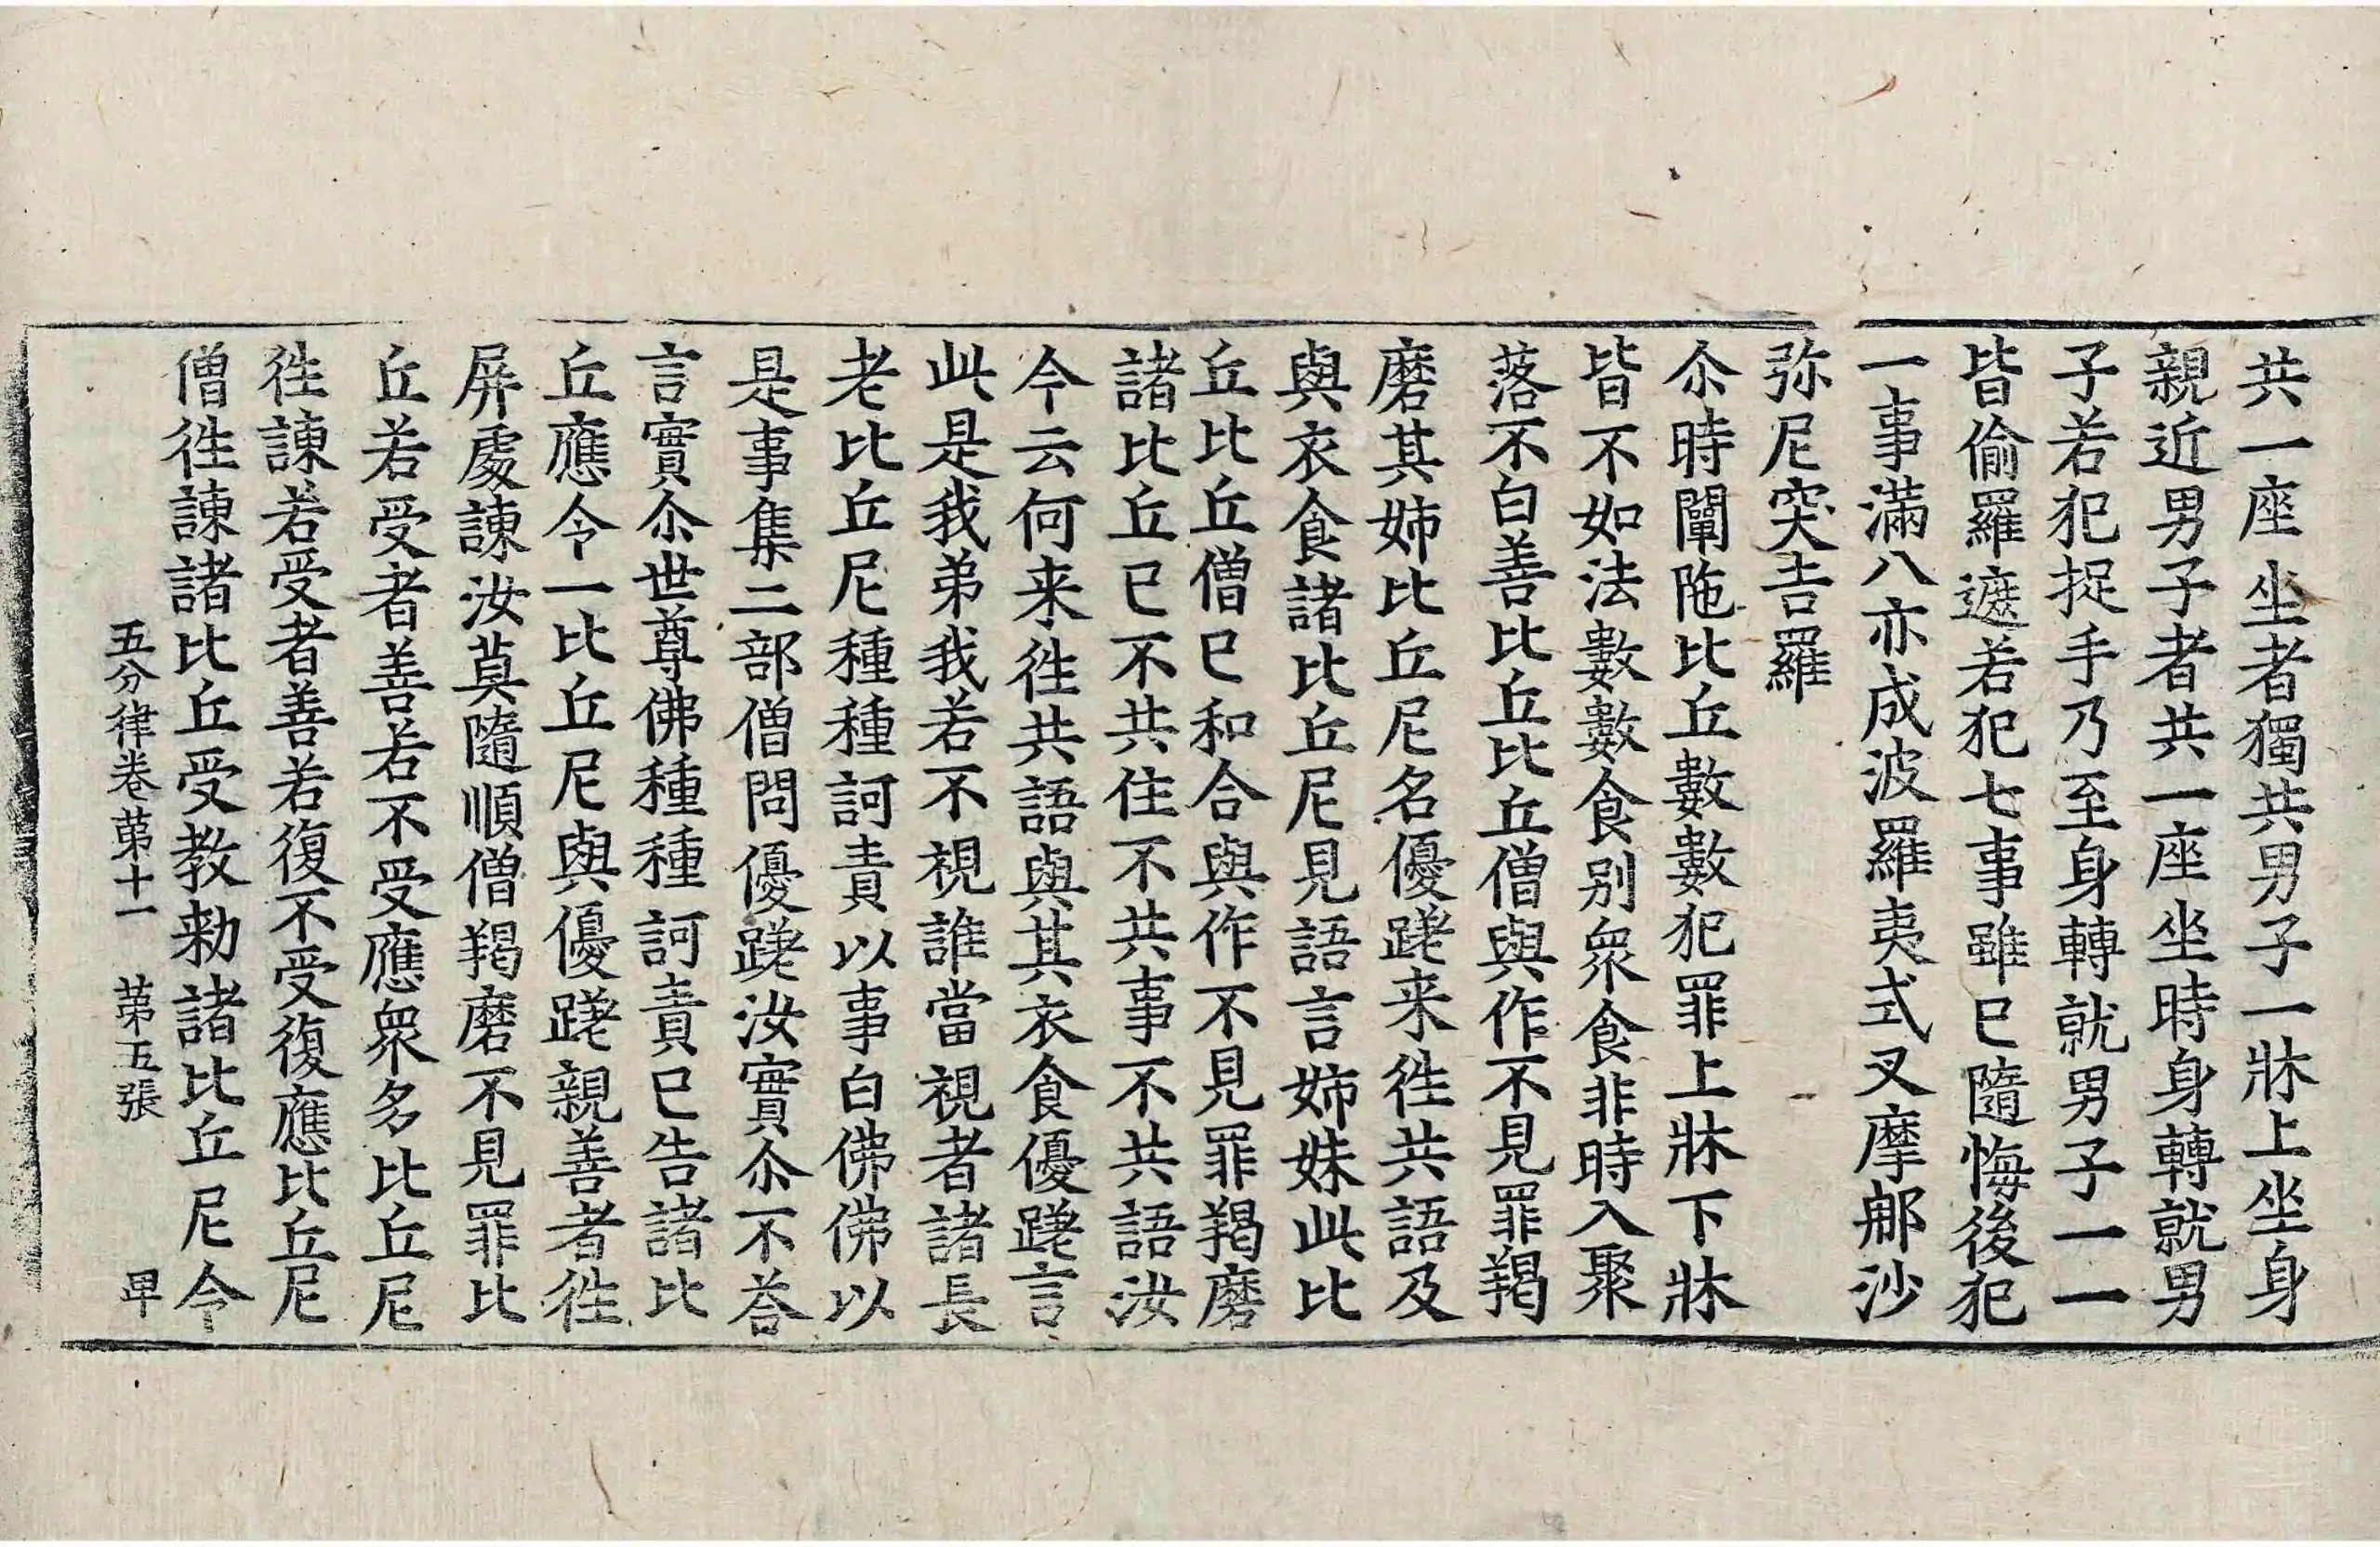 共一座坐者獨共男子一牀上坐身
親近男子者共一座坐時身轉就男
子若犯捉手乃至身轉就男子一一
皆偷羅遮若犯七事雖已隨悔後犯
一事滿八亦成波羅夷式叉摩那沙
弥尼突吉羅
尒時闡陁比丘數數犯罪上牀下牀
皆不如法數數食别衆食非時入聚
落不白善比丘比丘僧與作不見罪羯
磨其姉比丘尼名優蹉来徃共語及
與衣食諸比丘尼見語言姉妹此比
丘比丘僧已和合與作不見罪羯磨
諸比丘已不共住不共事不共語汝
今云何来徃共語與其衣食優蹉言
此是我弟我若不視誰當視者諸長
老比丘尼種種訶責以事白佛佛以
是事集二部僧問優蹉汝實尒不荅
言實尒世尊佛種種訶責已告諸比
丘應令一比丘尼與優蹉親善者徃
屏處諫汝莫隨順僧羯磨不見罪比
丘若受者善若不受應衆多比丘尼
徃諫若受者善若復不受復應比丘尼
僧徃諫諸比丘受教勑諸比丘尼令
五分律卷第十一　第五張　卑